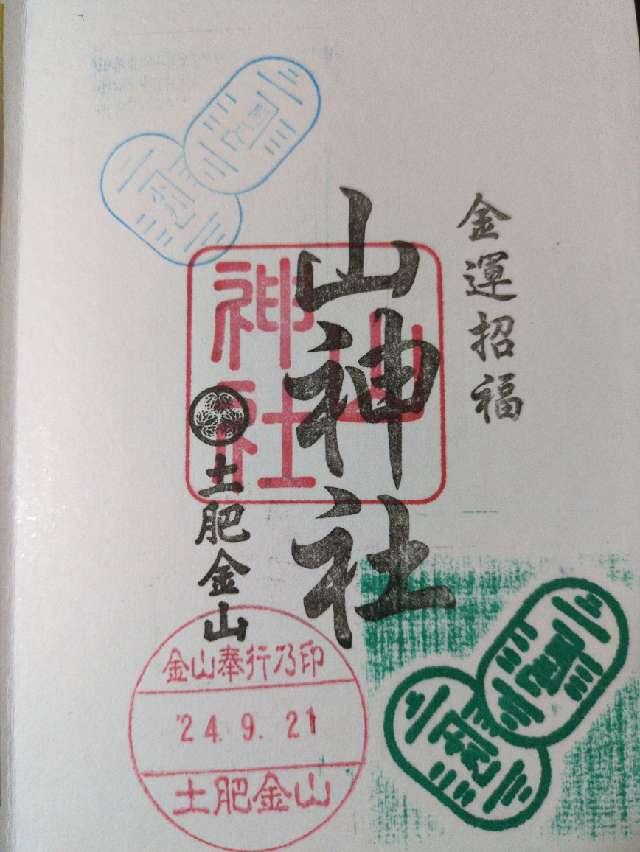 金運招福
山神社
山神社
土肥金山
金山奉行乃印
24.9.21
土肥金山